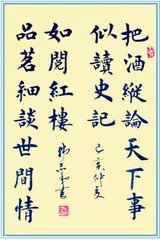 把酒縱論天下事
似讀史記
己亥仲夏
如閱紅樓
書
品茗細談世間情